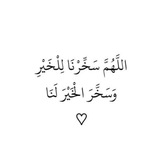 اللَّهُمَّ سَخِّرْنَا لِلْخَيْرِ
وَسَخِّرَ الْخَيْرَ لَنَا
♡